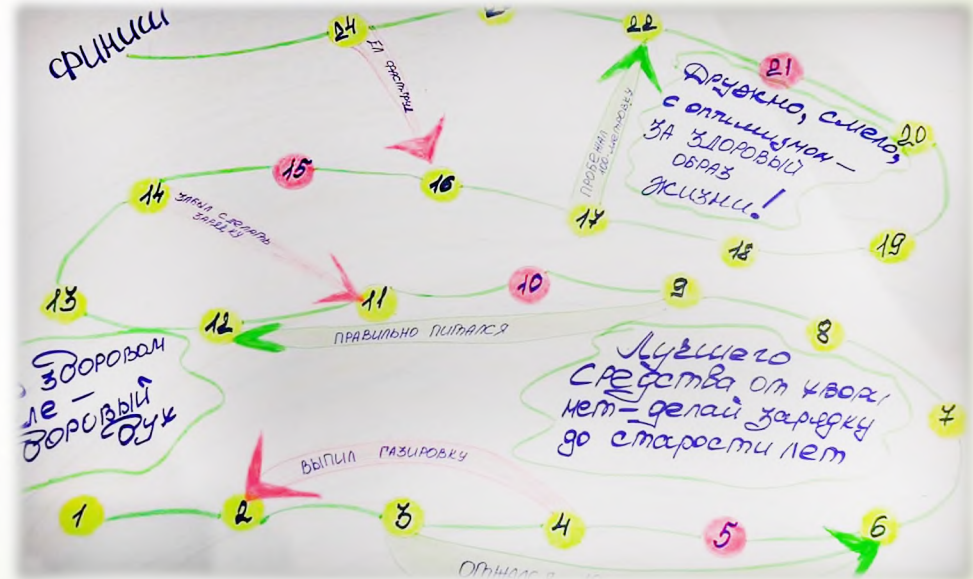 ФИНИШ
24
22
21
20
ЕЛ ФАСТФУД
Дружно, смело,
с оптимизмом —
ЗА ЗДОРОВЫЙ
ОБРАЗ
жизни!
ПРОБЕЖАЛ
100-МЕТРОВКУ
14
15
16
17
18
19
ЗАБЫЛ СДЕЛАТЬ
ЗАРЯДКУ
13
12
11
10
9
8
7
ПРАВИЛЬНО ПИТАЛСЯ
здоровом
ле —
доровый
дух
Лучшего
средства от хвори
нет — делай зарядку
до старости лет
ВЫПИЛ ГАЗИРОВКУ
1
2
3
4
5
6